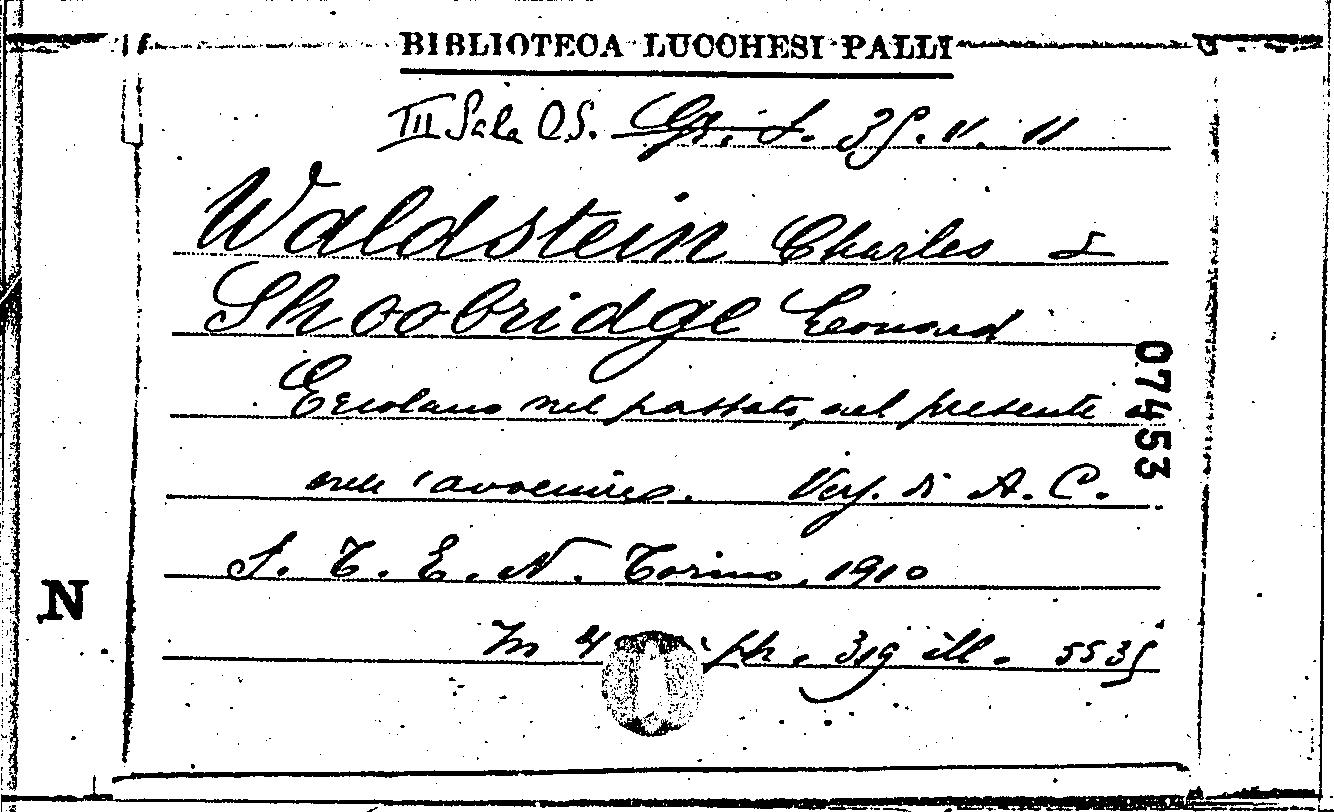 BIBLIOTECA LUCCHESI-PALLI
III Sala O.S. Gr. S. 35. V. 11
Waldstein Charles &
Shoobridge Leonard
Ercolano nel passato, nel presente e
nell'avvenire. Vers. di A. C.
S. T. E. N. Torino, 1910
In 4 pp. 319 ill. 5535
07453
N